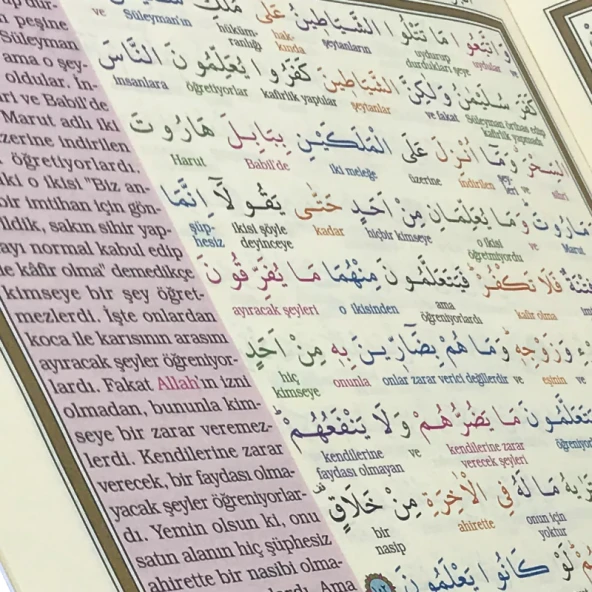 وَاتَّبَعُوا مَا تَتْلُوا الشَّيَاطِينُ عَلٰى مُلْكِ
ve uydular uydurup durdukları şeye şeytanların hakkında hükümranlığı Süleyman'ın ve
كَفَرَ سُلَيْمٰنُ وَلٰكِنَّ الشَّيَاطِينَ كَفَرُوا يُعَلِّمُونَ النَّاسَ
Süleyman ve fakat şeytanlar kafirlik yaptılar öğretiyorlar insanlara
السِّحْرَ وَمَا اُنْزِلَ عَلَى الْمَلَكَيْنِ بِبَابِلَ هَارُوتَ
sihri ve şeyleri indirilen üzerine iki meleğe Babil'de Harut
مَارُوتَ وَمَا يُعَلِّمَانِ مِنْ اَحَدٍ حَتّٰى يَقُولَٓا اِنَّمَا
Marut ve o ikisi öğretmiyordu hiçbir kimseye kadar ikisi şöyle deyinceye şüphesiz
فِتْنَةٌ فَلَا تَكْفُرْ فَيَتَعَلَّمُونَ مِنْهُمَا مَا يُفَرِّقُونَ
kafir olma ama öğreniyorlardı o ikisinden ayıracak şeyleri
وَزَوْجِهٖ وَمَا هُمْ بِضَٓارّٖينَ بِهٖ مِنْ اَحَدٍ
ve eşinin ve onlar zarar verici değillerdir onunla hiç kimseye
وَيَتَعَلَّمُونَ مَا يَضُرُّهُمْ وَلَا يَنْفَعُهُمْ
kendilerine zarar verecek şeyleri ve kendilerine faydası olmayan
مَا لَهُ فِي الْاٰخِرَةِ مِنْ خَلَاقٍ
onun için yoktur ahirette bir nasip
لَوْ كَانُوا يَعْلَمُونَ
peşine
Süleyman
ama o şey-
oldular. İn-
ve Babil'de
Marut adlı iki
üzerine indirilen
öğretiyorlardı.
o ikisi "Biz an-
bir imtihan için gön-
ildik, sakın sihir yap-
ayı normal kabul edip
de kâfir olma" demedikçe
kimseye bir şey öğret-
mezlerdi. İşte onlardan
koca ile karısının arasını
ayıracak şeyler öğreniyor-
lardı. Fakat Allah'ın izni
olmadan, bununla kim-
seye bir zarar veremez-
lerdi. Kendilerine zarar
verecek, bir faydası olma-
yacak şeyler öğreniyorlar-
dı. Yemin olsun ki, onu
satın alanın hiç şüphesiz
ahirette bir nasibi olma-
Ama